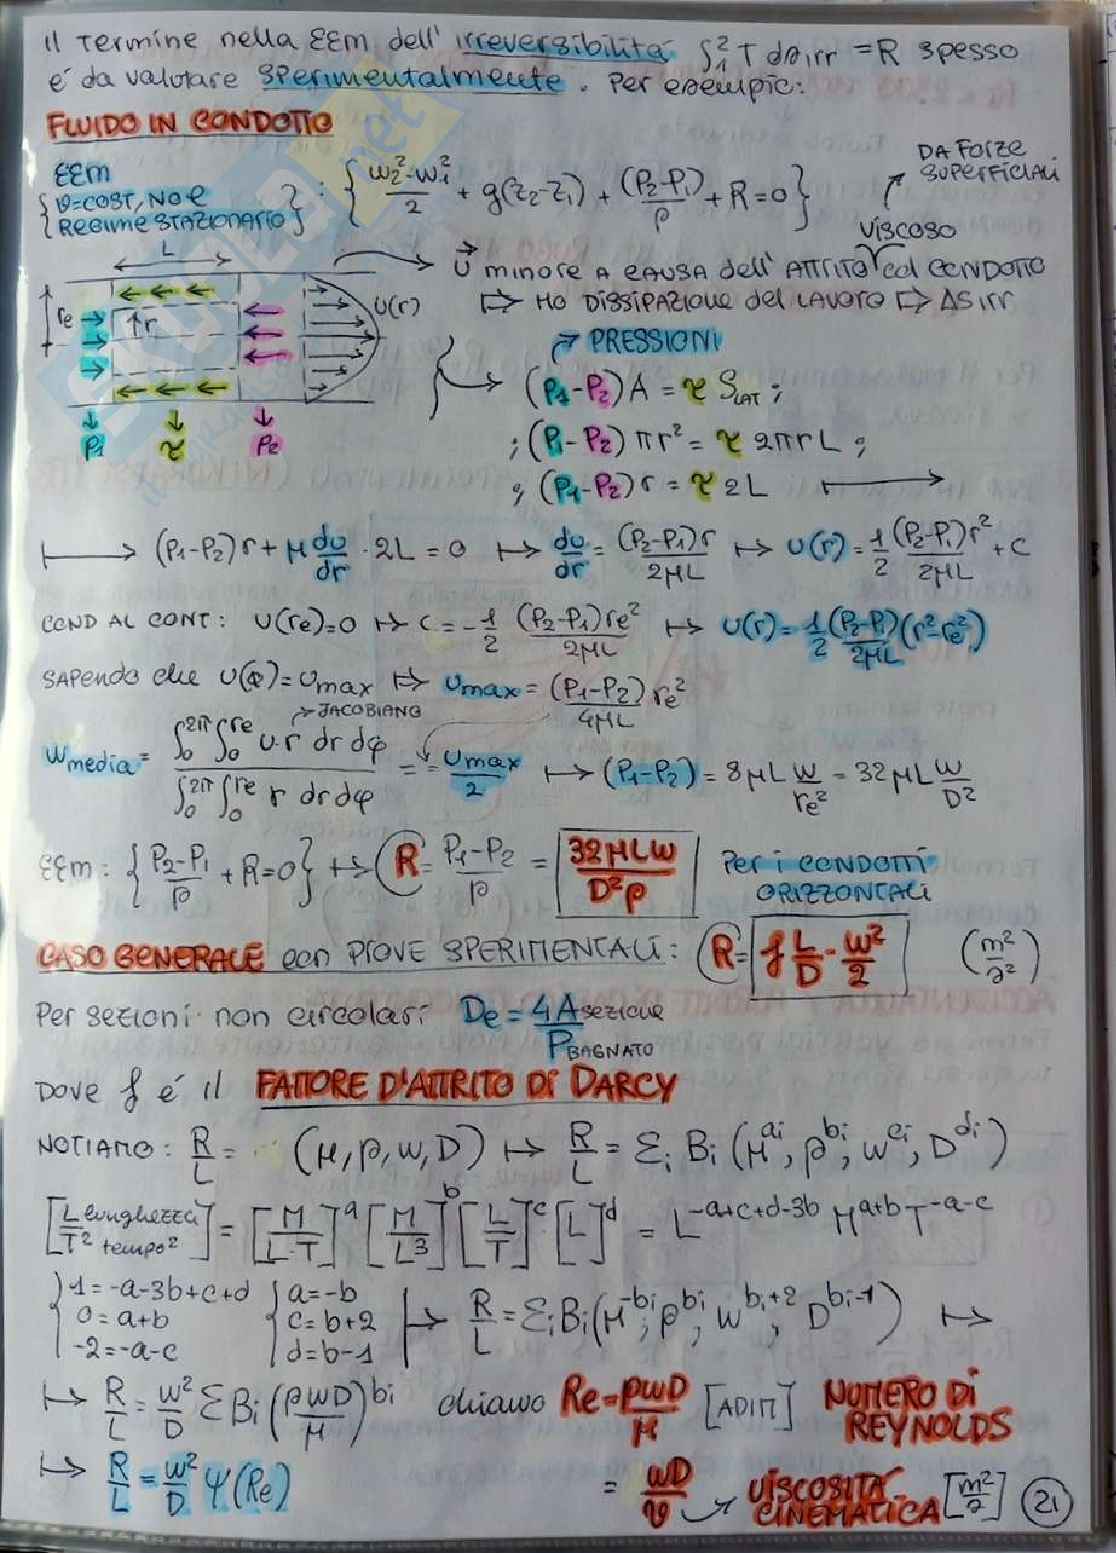 il termine nella EEm dell' irreversibilità ∫₁² T dsirr = R spesso
è da valutare sperimentalmente. Per esempio:
FLUIDO IN CONDOTTO
EEM
{ v=cost, no l
REGIME STAZIONARIO } : { (w₂²-w₁²)/2 + g(z₂-z₁) + (P₂-P₁)/ρ + R=0 }
DA FORZE
SUPERFICIALI
VISCOSO
L
re
r
U(r)
U minore A CAUSA dell' ATTRITO col CONDOTTO
⇨ HO DISSIPAZIONE del LAVORO ⇨ ΔS irr
PRESSIONI
(P₁-P₂)A = τ SLAT ;
P₁ τ P₂
; (P₁-P₂) πr² = τ 2πrL ;
; (P₁-P₂)r = τ 2L ⟼
⟼ (P₁-P₂)r + μ du/dr · 2L = 0 ↦ du/dr = (P₂-P₁)r/2μL ↦ U(r) = 1/2 (P₂-P₁)r²/2μL + C
COND AL CONT: U(re)=0 ↦ C = -1/2 (P₂-P₁)re²/2μL ↦ U(r) = 1/2 (P₂-P₁)/2μL (r²-re²)
SAPENDO che U(φ)=Umax ↦ Umax = (P₁-P₂)/4μL re²
→ JACOBIANO
wmedia = ∫₀²π ∫₀re U·r dr dφ / ∫₀²π ∫₀re r dr dφ = = Umax/2 ↦ (P₁-P₂) = 8μL w/re² = 32μL w/D²
EEm: { (P₂-P₁)/ρ + R=0 } ↦ R = (P₁-P₂)/ρ = 32μLw/D²ρ Per i CONDOTTI
ORIZZONTALI
CASO GENERALE con PROVE SPERIMENTALI: R = f L/D · w²/2 (m²/s²)
Per sezioni non circolari De = 4Asezione/PBAGNATO
Dove f è il FATTORE D'ATTRITO Di DARCY
NOTIAMO: R/L = (μ,ρ,w,D) ↦ R/L = Σi Bi (μ^ai, ρ^bi, w^ci, D^di)
[L lunghezza/T² tempo²] = [M/L·T]^a [M/L³]^b [L/T]^c · [L]^d = L^-a+c+d-3b M^a+b T^-a-c
{ 1=-a-3b+c+d { a=-b
0=a+b c=b+2 ↦ R/L = Σi Bi (μ^-bi, ρ^bi, w^bi+2, D^bi-1) ↦
-2=-a-c d=b-1
↦ R/L = w²/D Σ Bi (ρwD/μ)^bi chiamo Re = ρwD/μ [ADIM] NUMERO Di
REYNOLDS
↦ R/L = w²/D ψ(Re) = wD/ν → VISCOSITÀ
CINEMATICA [m²/s] 21